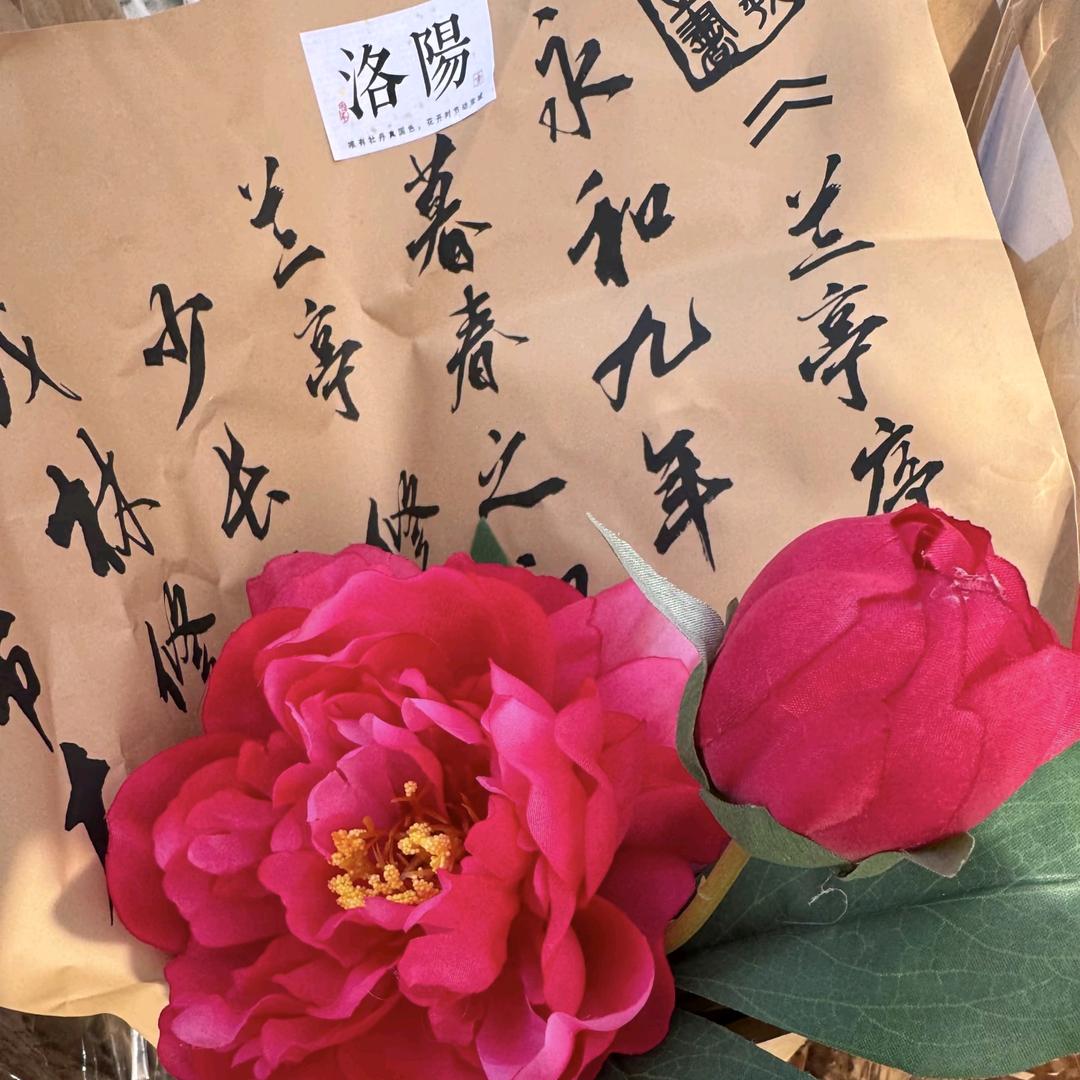 洛陽
唯有牡丹真国色，花开时节动京城
《兰亭序
永和九年
暮春之
兰亭修
少长
茂林修